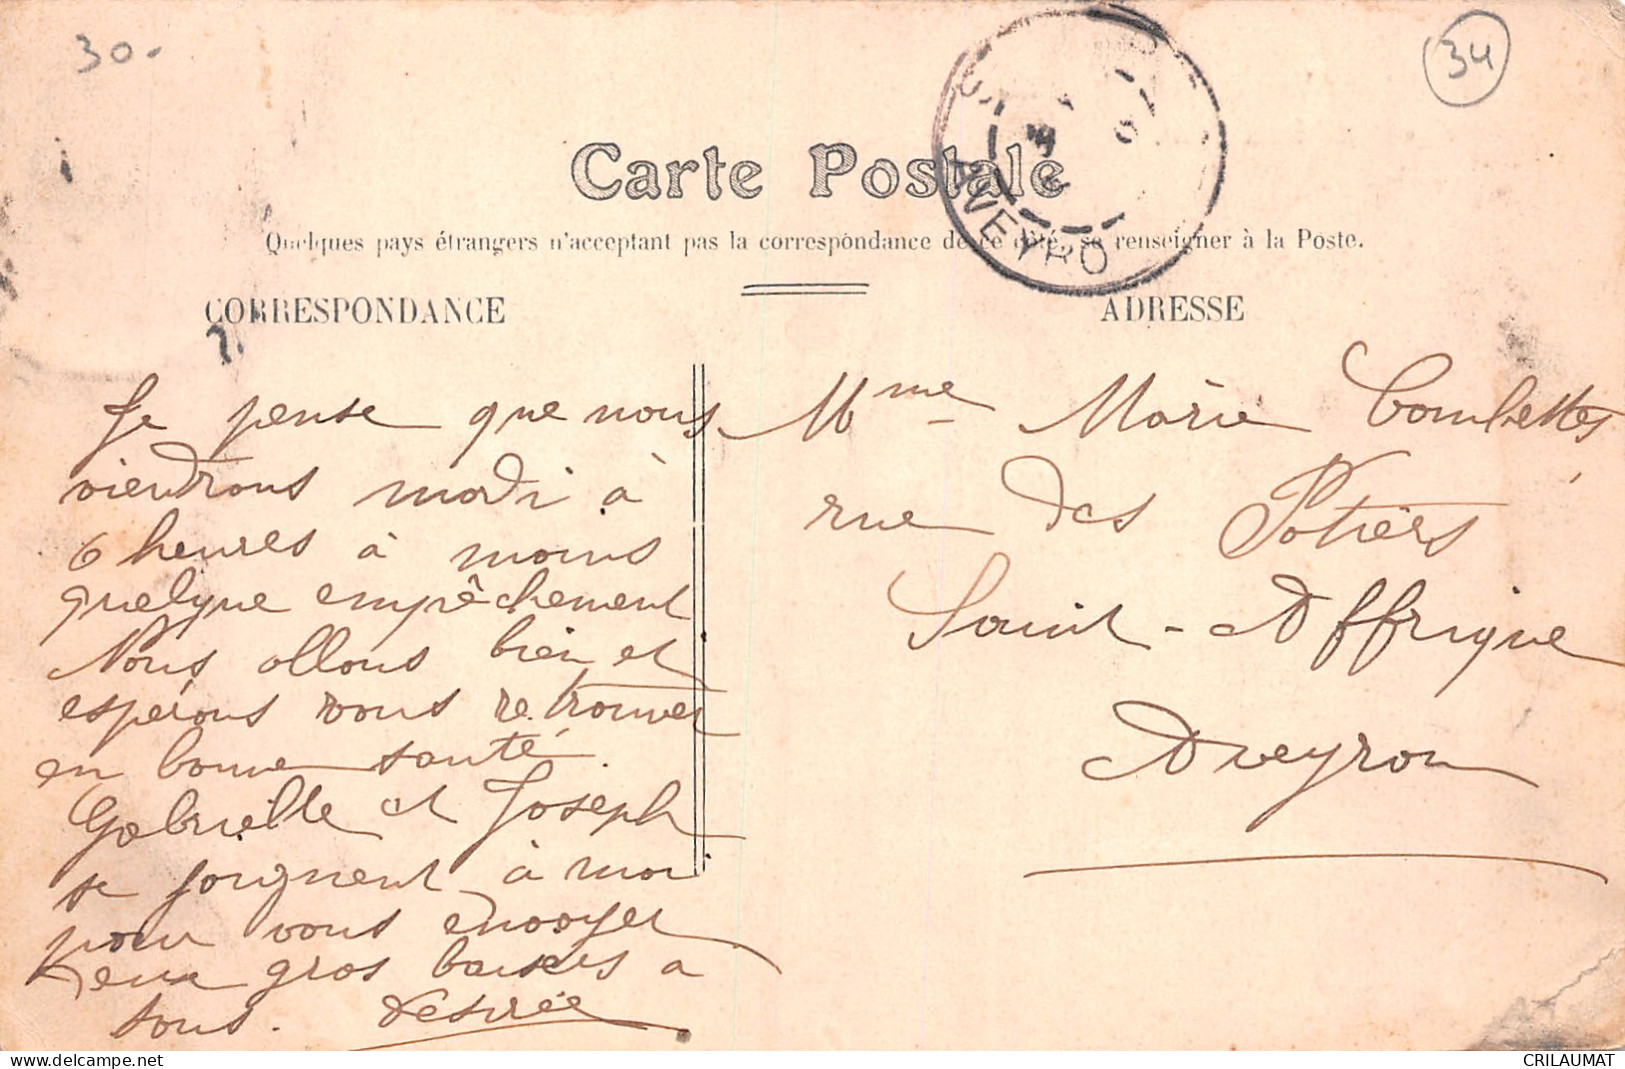 30.-
34
Carte Postale
AVEYRO
Quelques pays étrangers n'acceptant pas la correspondance de ce côté, se renseigner à la Poste.
CORRESPONDANCE
ADRESSE
Je pense que nous
viendrons mardi à
6 heures à moins
quelque empêchement
Nous allons bien et
espérons vous retrouver
en bonne santé.
Gabrielle et Joseph
se joignent à moi
pour vous envoyer
deux gros baisers a
tous. Desirée
Mme Marie Combettes
rue des Potiers
Saint-Affrique
Aveyron
CRILAUMAT